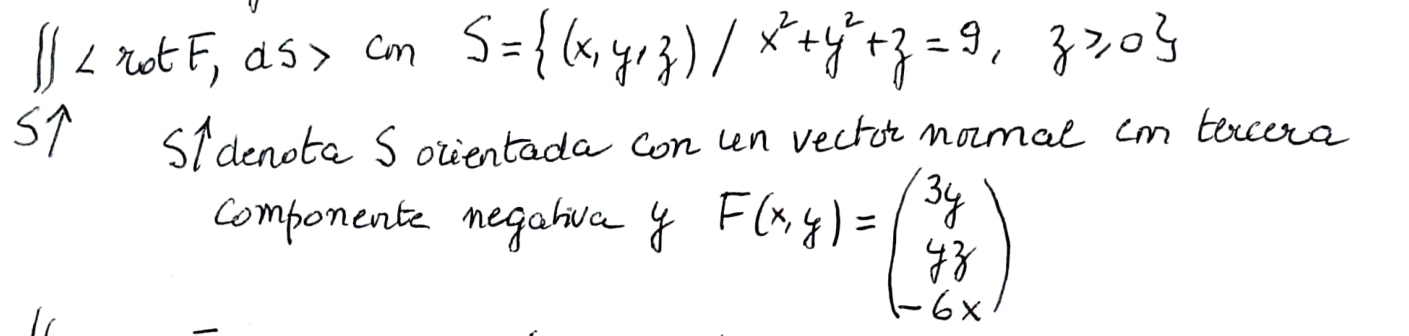 ∬ < rot F, dS > con S={(x, y, z) / x²+y²+z=9, z≥0}
S↑ S↑ denota S orientada con un vector normal con tercera
componente negativa y F(x, y) = (3y
yz
-6x)